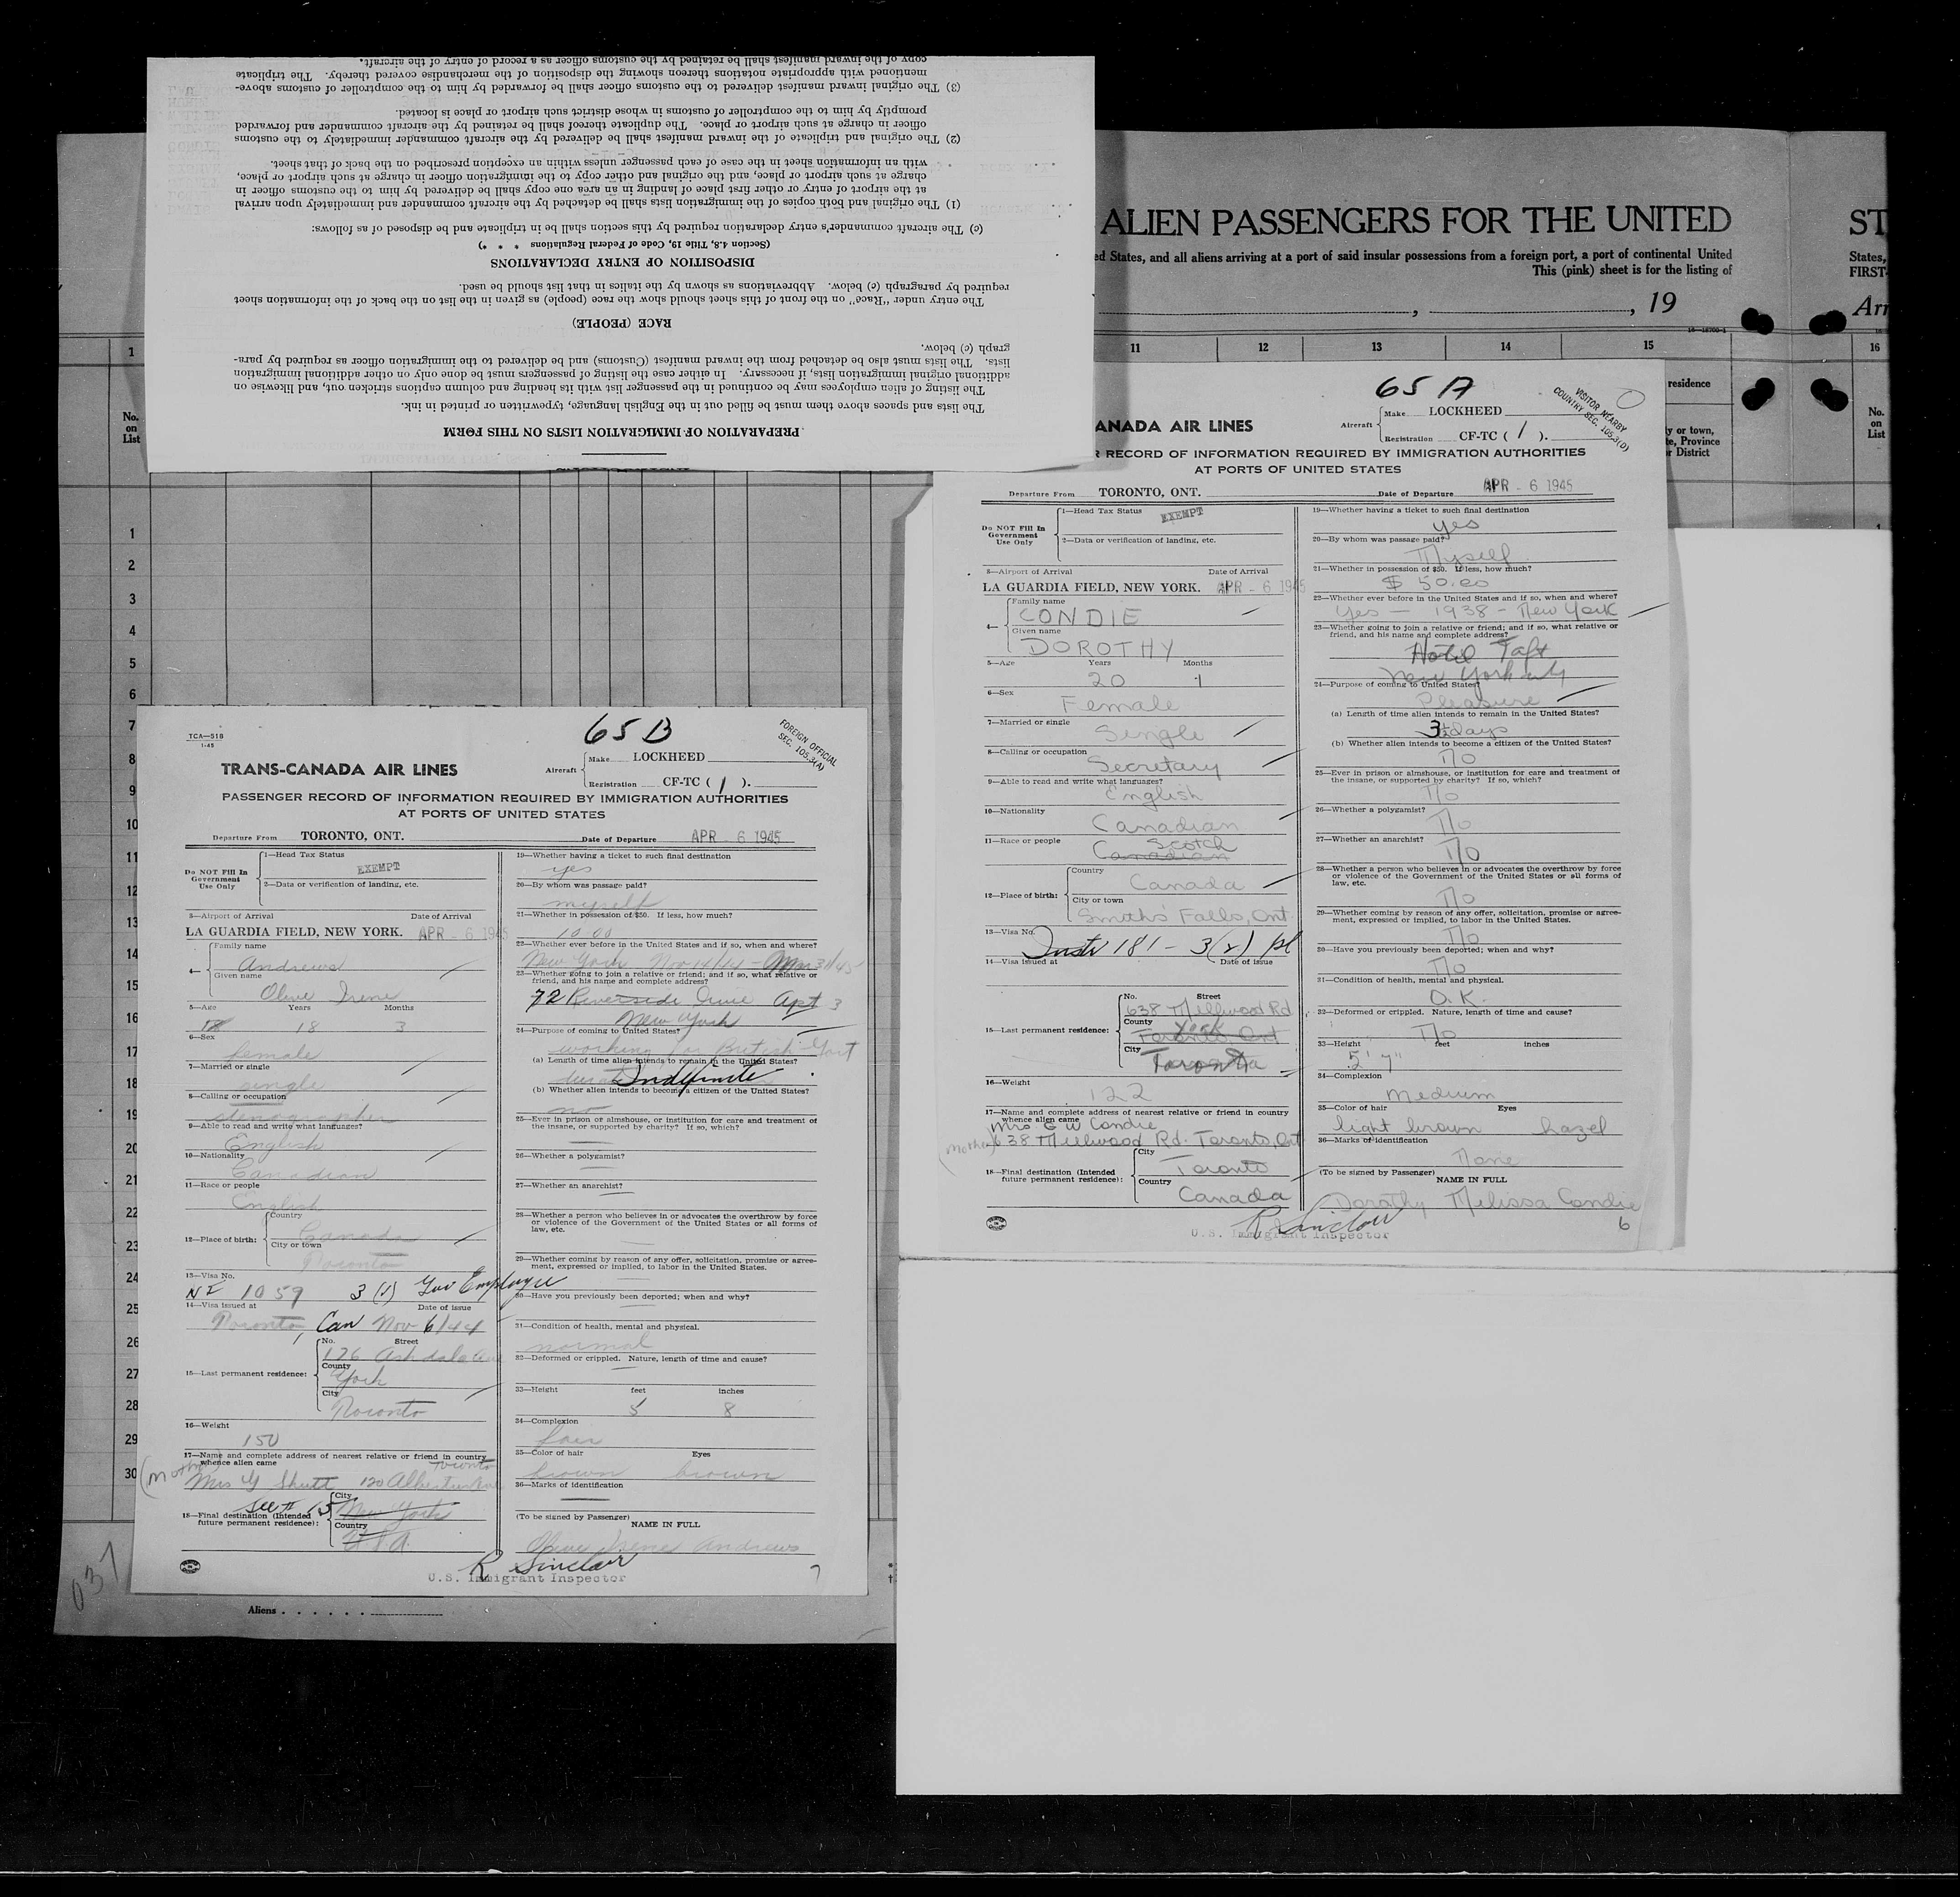 PREPARATION OF IMMIGRATION LISTS ON THIS FORM
The lists and spaces above them must be filled out in the English language, typewritten or printed in ink.
The listing of alien employees may be continued in the passenger list with its heading and column captions stricken out, and likewise on
additional original immigration lists, if necessary. In either case the listing of passengers must be done only on other additional immigration
lists. The lists must also be detached from the inward manifest (Customs) and be delivered to the immigration officer as required by para-
graph (c) below.
RACE (PEOPLE)
The entry under "Race" on the front of this sheet should show the race (people) as given in the list on the back of the information sheet
required by paragraph (c) below. Abbreviations as shown by the italics in that list should be used.
DISPOSITION OF ENTRY DECLARATIONS
(Section 4.8, Title 19, Code of Federal Regulations * * *)
(c) The aircraft commander's entry declaration required by this section shall be in triplicate and be disposed of as follows:
(1) The original and both copies of the immigration lists shall be detached by the aircraft commander and immediately upon arrival
at the airport of entry or other first place of landing in an area one copy shall be delivered by him to the customs officer in
charge at such airport or place, and the original and other copy to the immigration officer in charge at such airport or place,
with an information sheet in the case of each passenger unless within an exception prescribed on the back of that sheet.
(2) The original and triplicate of the inward manifest shall be delivered by the aircraft commander immediately to the customs
officer in charge at such airport or place. The duplicate thereof shall be retained by the aircraft commander and forwarded
promptly by him to the comptroller of customs in whose district such airport or place is located.
(3) The original inward manifest delivered to the customs officer shall be forwarded by him to the comptroller of customs above-
mentioned with appropriate notations thereon showing the disposition of the merchandise covered thereby. The triplicate
copy of the inward manifest shall be retained by the customs officer as a record of entry of the aircraft.
ALIEN PASSENGERS FOR THE UNITED
ST
ed States, and all aliens arriving at a port of said insular possessions from a foreign port, a port of continental United
States,
This (pink) sheet is for the listing of
FIRST-
, , 19
Arr
1
11 12 13 14 15 16
No.
on
List
residence
y or town,
te, Province
r District
No.
on
List
1
2
3
4
5
6
7
8
9
10
11
12
13
14
15
16
17
18
19
20
21
22
23
24
25
26
27
28
29
30
037
Aliens
TCA—518
1-45
65 B
FOREIGN OFFICIAL
SEC. 105.3(A)
TRANS-CANADA AIR LINES
Aircraft
Make LOCKHEED
Registration CF-TC ( 1 ).
PASSENGER RECORD OF INFORMATION REQUIRED BY IMMIGRATION AUTHORITIES
AT PORTS OF UNITED STATES
Departure From TORONTO, ONT.
Date of Departure APR - 6 1945
Do NOT Fill In
Government
Use Only
1—Head Tax Status
EXEMPT
2—Data or verification of landing, etc.
3—Airport of Arrival Date of Arrival
LA GUARDIA FIELD, NEW YORK. APR - 6 1945
4—
Family name
Andrews
Given name
Olive Irene
5—Age Years Months
18 3
6—Sex
female
7—Married or single
single
8—Calling or occupation
stenographer
9—Able to read and write what languages?
English
10—Nationality
Canadian
11—Race or people
English
12—Place of birth:
Country
Canada
City or town
Toronto
13—Visa No.
NI 1059 3 (1) Gov Employee
14—Visa issued at Date of issue
Toronto, Can Nov 6/44
15—Last permanent residence:
No. Street
176 Ashdale Ave
County
York
City
Toronto
16—Weight
150
17—Name and complete address of nearest relative or friend in country
whence alien came
Toronto
(Mother) Mrs G Shutt 120
See # 15
18—Final destination (Intended
future permanent residence):
City
New York
Country
U.S.A.
19—Whether having a ticket to such final destination
yes
20—By whom was passage paid?
myself
21—Whether in possession of $50. If less, how much?
10.00
22—Whether ever before in the United States and if so, when and where?
New York Nov 14/44 - Mar 31/45
23—Whether going to join a relative or friend; and if so, what relative or
friend, and his name and complete address?
72 Riverside Drive Apt 3
New York
24—Purpose of coming to United States?
working for British Govt
(a) Length of time alien intends to remain in the United States?
Indefinite
(b) Whether alien intends to become a citizen of the United States?
no
25—Ever in prison or almshouse, or institution for care and treatment of
the insane, or supported by charity? If so, which?
26—Whether a polygamist?
27—Whether an anarchist?
28—Whether a person who believes in or advocates the overthrow by force
or violence of the Government of the United States or all forms of
law, etc.
29—Whether coming by reason of any offer, solicitation, promise or agree-
ment, expressed or implied, to labor in the United States.
30—Have you previously been deported; when and why?
31—Condition of health, mental and physical.
normal
32—Deformed or crippled. Nature, length of time and cause?
33—Height feet inches
5 8
34—Complexion
fair
35—Color of hair Eyes
brown brown
36—Marks of identification
(To be signed by Passenger)
NAME IN FULL
Olive Irene Andrews
R Sinclair
U.S. Immigrant Inspector
7
65 A
VISITOR NEARBY
COUNTRY SEC. 105.3(D)
ANADA AIR LINES
Aircraft
Make LOCKHEED
Registration CF-TC ( 1 ).
R RECORD OF INFORMATION REQUIRED BY IMMIGRATION AUTHORITIES
AT PORTS OF UNITED STATES
Departure From TORONTO, ONT.
Date of Departure APR - 6 1945
Do NOT Fill In
Government
Use Only
1—Head Tax Status
EXEMPT
2—Data or verification of landing, etc.
3—Airport of Arrival Date of Arrival
LA GUARDIA FIELD, NEW YORK. APR - 6 1945
4—
Family name
CONDIE
Given name
DOROTHY
5—Age Years Months
20 1
6—Sex
Female
7—Married or single
Single
8—Calling or occupation
Secretary
9—Able to read and write what languages?
English
10—Nationality
Canadian
11—Race or people
Scotch
Canadian
12—Place of birth:
Country
Canada
City or town
Smiths Falls, Ont
13—Visa No.
Instr 181 - 3(2) pl
14—Visa issued at Date of issue
15—Last permanent residence:
No. Street
638 Millwood Rd
County
York
Toronto, Ont
City
Toronto
16—Weight
122
17—Name and complete address of nearest relative or friend in country
whence alien came
Mrs C W Condie
(Mother) 638 Millwood Rd. Toronto, Ont
18—Final destination (Intended
future permanent residence):
City
Toronto
Country
Canada
19—Whether having a ticket to such final destination
yes
20—By whom was passage paid?
Myself
21—Whether in possession of $50. If less, how much?
$ 50.00
22—Whether ever before in the United States and if so, when and where?
Yes — 1938 - New York
23—Whether going to join a relative or friend; and if so, what relative or
friend, and his name and complete address?
Hotel Taft
New York City
24—Purpose of coming to United States?
Pleasure
(a) Length of time alien intends to remain in the United States?
3 days
(b) Whether alien intends to become a citizen of the United States?
No
25—Ever in prison or almshouse, or institution for care and treatment of
the insane, or supported by charity? If so, which?
No
26—Whether a polygamist?
No
27—Whether an anarchist?
No
28—Whether a person who believes in or advocates the overthrow by force
or violence of the Government of the United States or all forms of
law, etc.
No
29—Whether coming by reason of any offer, solicitation, promise or agree-
ment, expressed or implied, to labor in the United States.
No
30—Have you previously been deported; when and why?
No
31—Condition of health, mental and physical.
O.K.
32—Deformed or crippled. Nature, length of time and cause?
No
33—Height feet inches
5' 7"
34—Complexion
Medium
35—Color of hair Eyes
light brown hazel
36—Marks of identification
None
(To be signed by Passenger)
NAME IN FULL
Dorothy Melissa Condie
R Sinclair
U.S. Immigrant Inspector
6